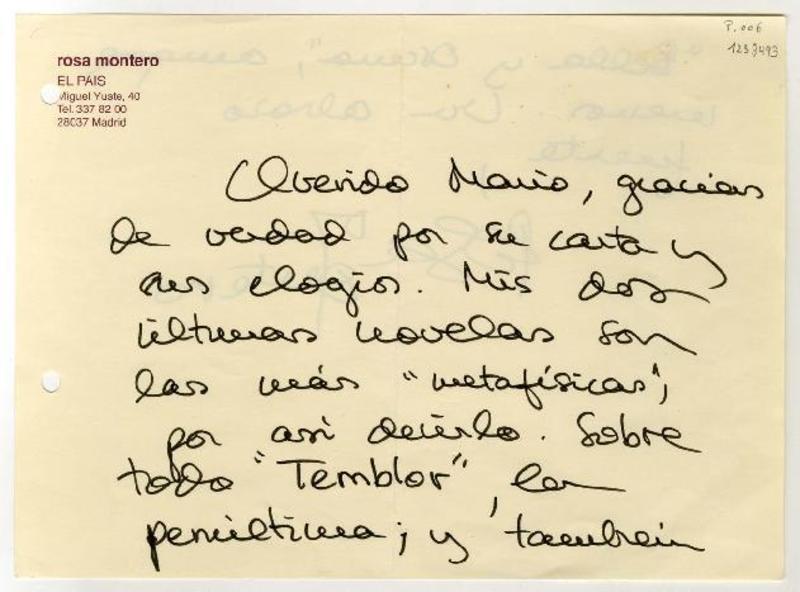 P.006
1237493
rosa montero
EL PAIS
Miguel Yuste, 40
Tel. 337 82 00
28037 Madrid
Querido Mario, gracias
de verdad por su carta y
sus elogios. Mis dos
últimas novelas son
las más "metafísicas",
por así decirlo. Sobre
todo "Temblor", la
penúltima; y también